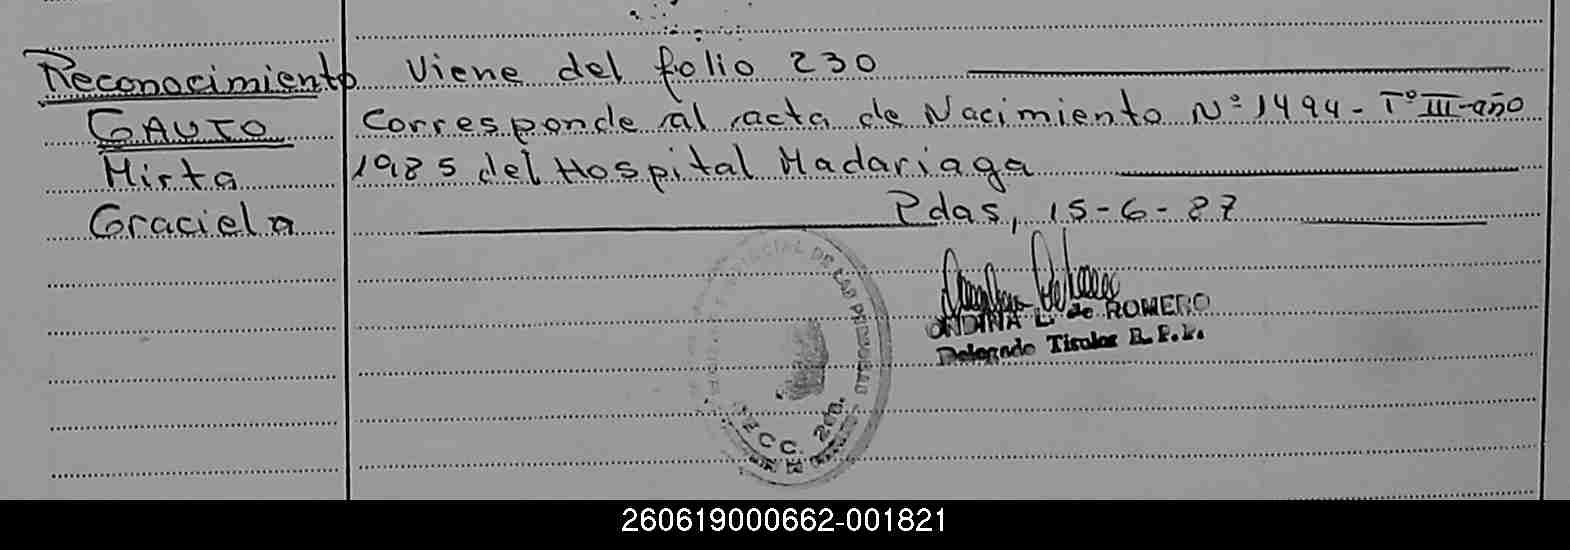 Reconocimiento
GAUTO
Mirta
Graciela
Viene del folio 230
Corresponde al acta de Nacimiento Nº 1494 - Tº III - año
1985 del Hospital Madariaga
Pdas, 15-6-87
ONDINA L. de ROMERO
Delegado Titular R. P. P.
DE LAS PERSONAS
SECC. 2da.
260619000662-001821